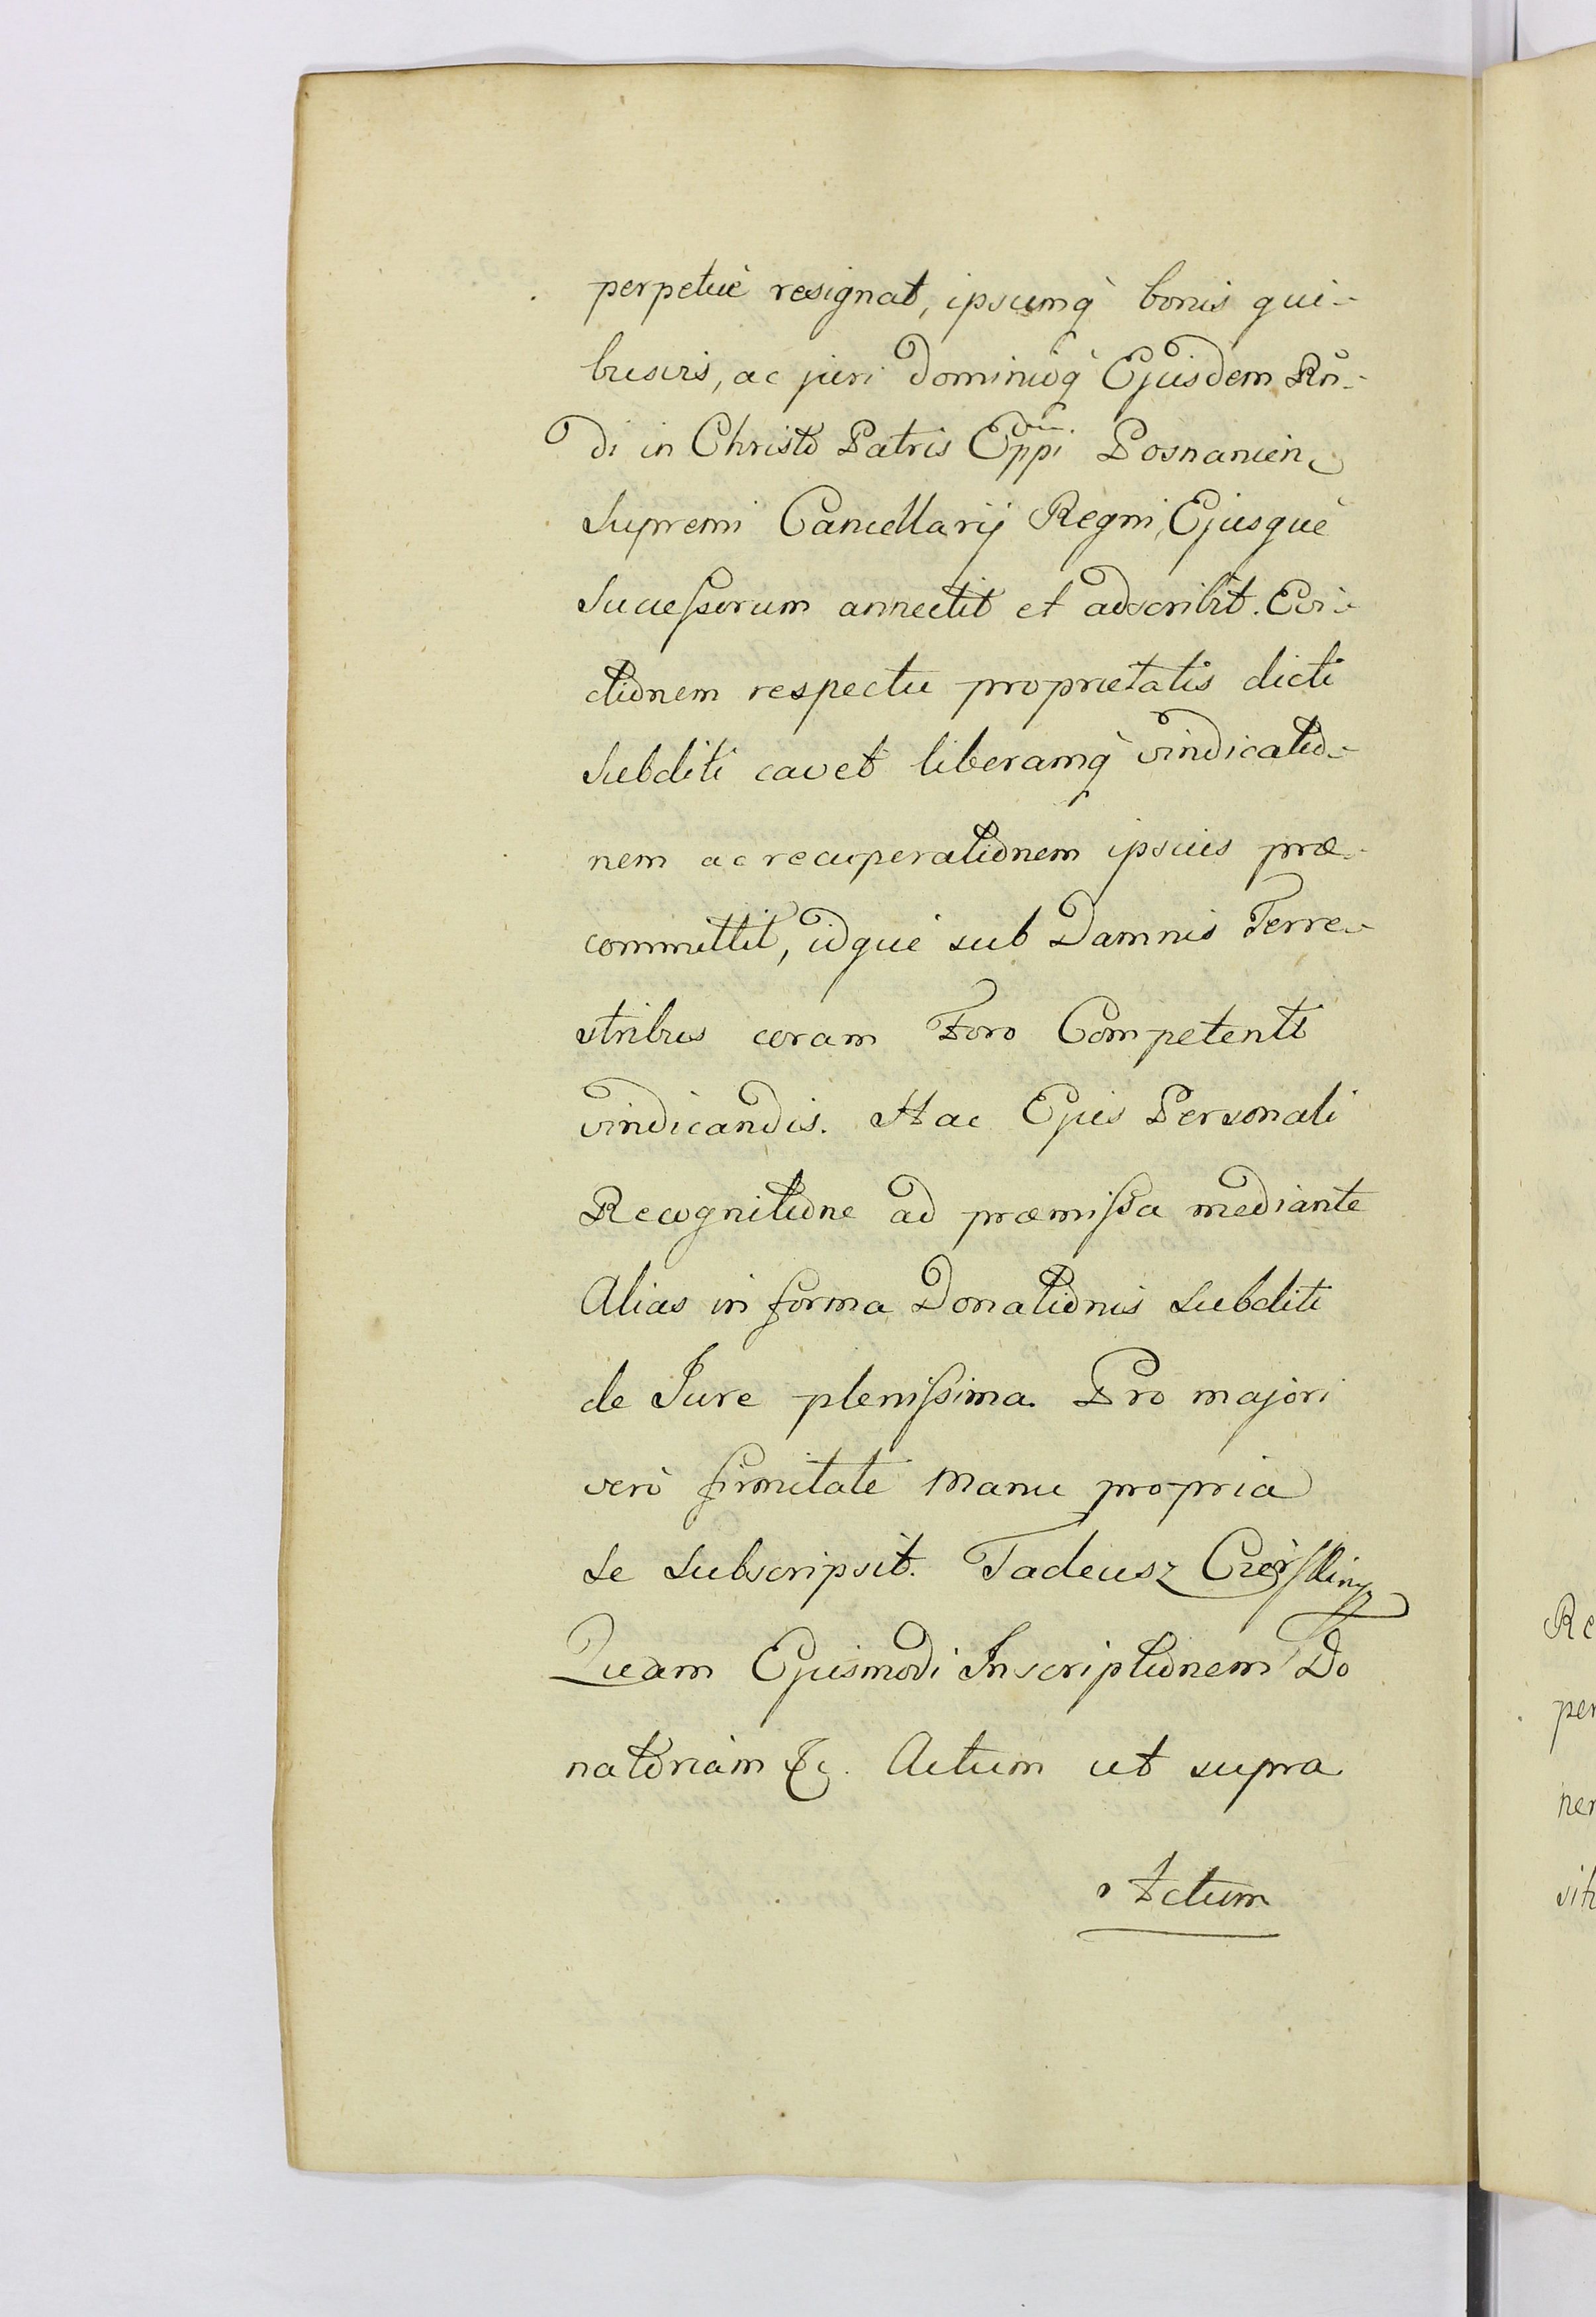 perpetuè resignat, ipsumq̀ bonis qui-
busvis, ac juri dominioq̀ Ejusdem Rñ-
di in Christo Patris Eppi Posnanien
Supremi Cancellarij Regni, Ejusquè
Sucessorum annectit et adscribit. Evi-
ctionem respectu proprietatis dicti
Subditi cavet liberamq̀ vindicatio-
nem ac recuperationem ipsius præ-
committit, idquè sub Damnis Terre-
stribus coram Foro Competenti
vindicandis. Hac Ejus Personali
Recognitione ad præmissa mediante
Alias in forma Donationis Subditi
de Jure plenissima. Pro majori
verò firmitate manu propria
Se Subscripsit. Tadeusz
Quam Ejusmodi Inscriptionem Do
natoriam &c. Actum ut supra
Actum
Re
per
ner